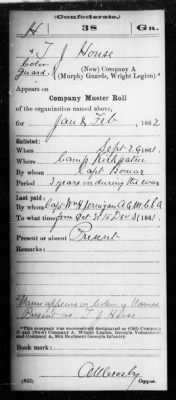 (Confederate.)
H 38 Ga.
T J House
Color
Guard, (New) Company A
(Murphy Guards, Wright Legion).*
Appears on
Company Muster Roll
of the organization named above,
for Jan & Feb, 1862.
Enlisted:
When Sept 26, 1861.
Where Camp Kirkpatrick
By whom Capt Bomar
Period 3 years or during the war
Last paid:
By whom Capt Wm H Jernigan A Q M C S A
To what time from Oct 31 to Dec 31, 1861.
Present or absent Present
Remarks:
Name appears in column of Names
Present as T J House
*This company was successively designated as (Old) Company
and (New) Company A, Wright Legion, Georgia Volunteers
and Company A, 38th Regiment Georgia Infantry.
Book mark:
(642) Copyist.